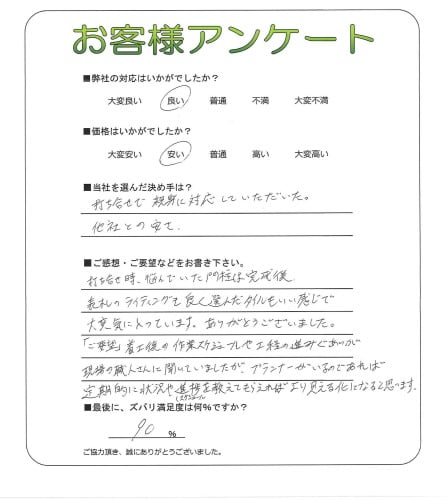 お客様アンケート
■弊社の対応はいかがでしたか?
大変良い 良い 普通 不満 大変不満
■価格はいかがでしたか?
大変安い 安い 普通 高い 大変高い
■当社を選んだ決め手は?
打ち合せで親身に対応していただいた。
他社との
■ご感想・ご要望などをお書き下さい。
打ち合せ時、悩んでいた門柱は完成後
表札のライティングも良く選んだタイルもいい感じで
大変気に入っています。ありがとうございました。
「ご要望」着工後の作業スケジュールや工程の進み
現場の職人さんに聞いていましたが、プランナーがいるのであれば
定期的に状況や進捗を教えてもらえればより見える化になると思います。
■最後に、ズバリ満足度は何%ですか?
90 %
ご協力頂き、誠にありがとうございました。